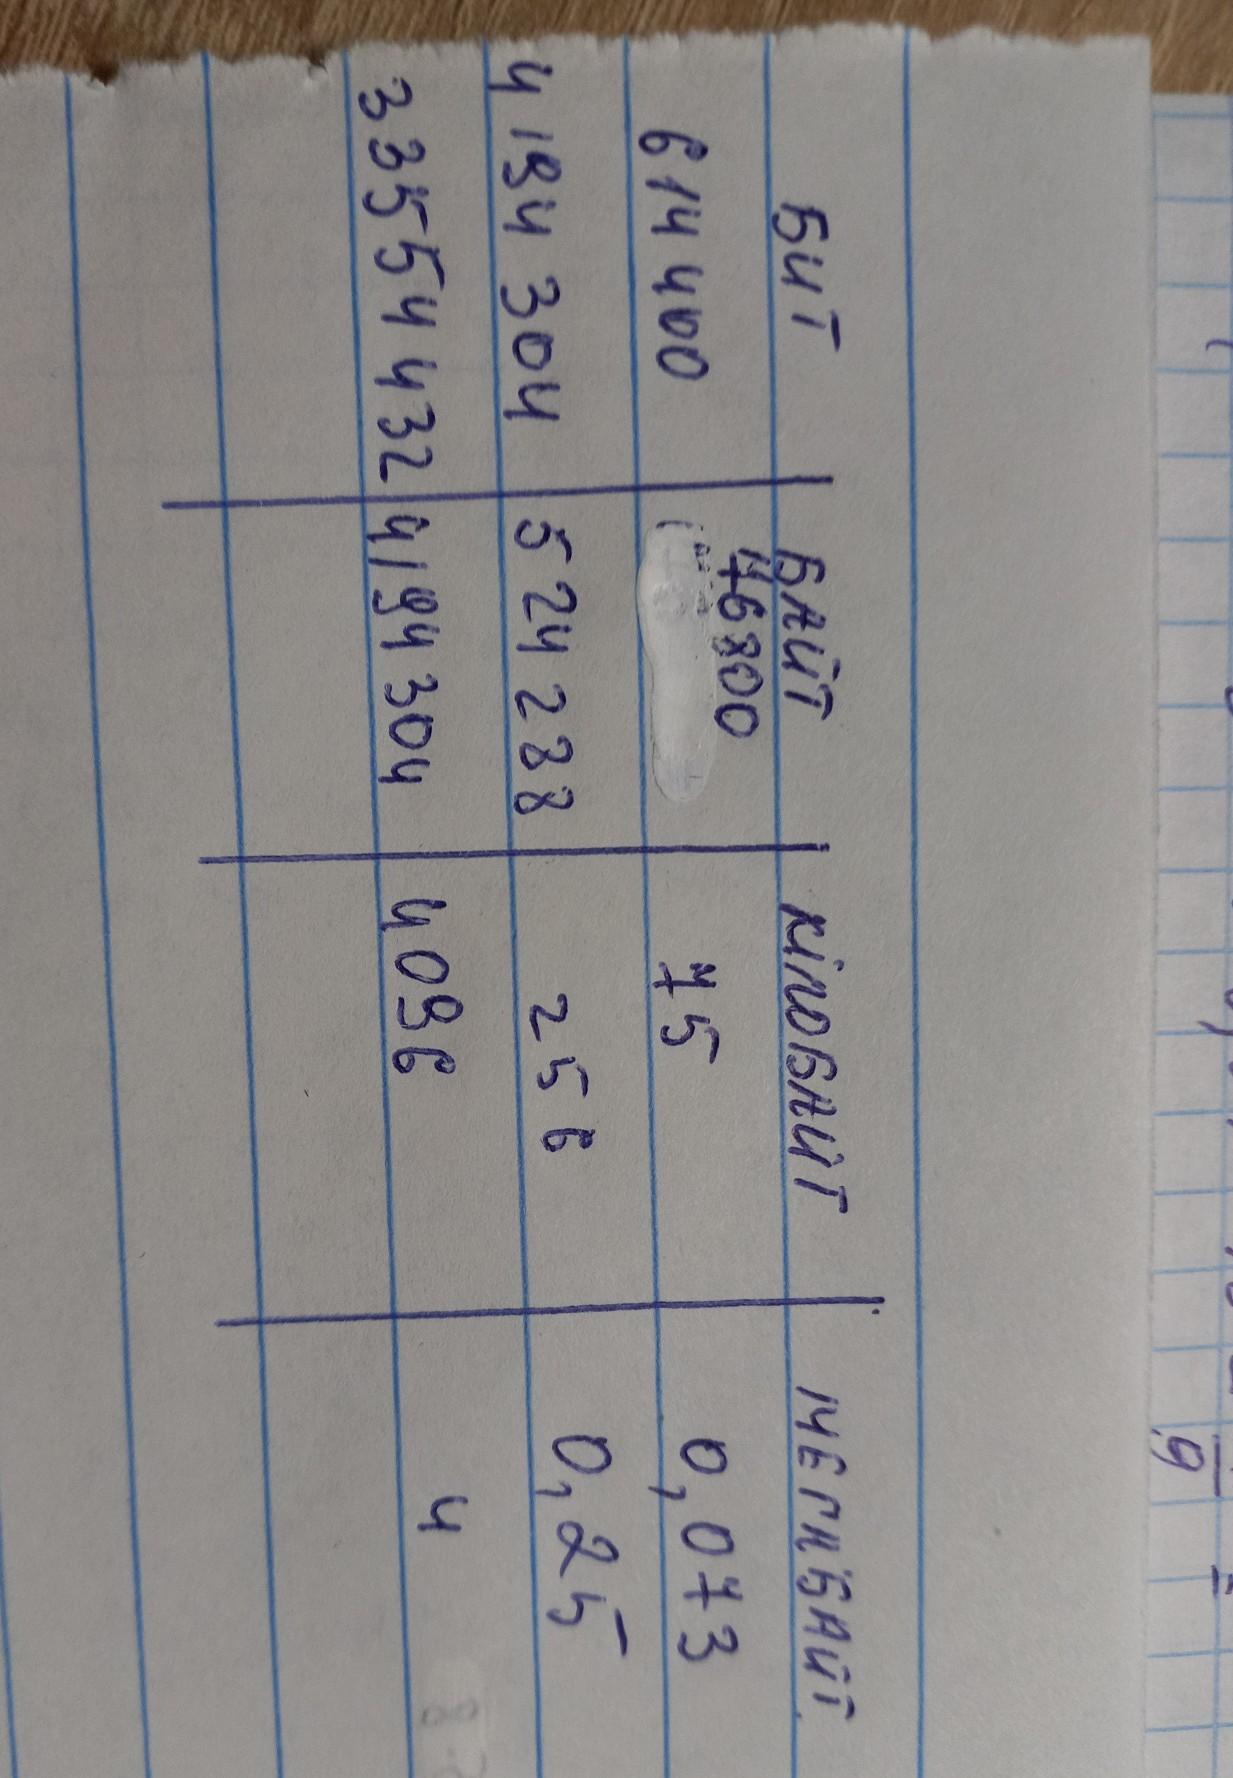 БИТ БАЙТ КІЛОБАЙТ МЕГАБАЙТ
614 400 76800 75 0,073
4 194 304 524 288 256 0,25
33554432 4194304 4096 4
9